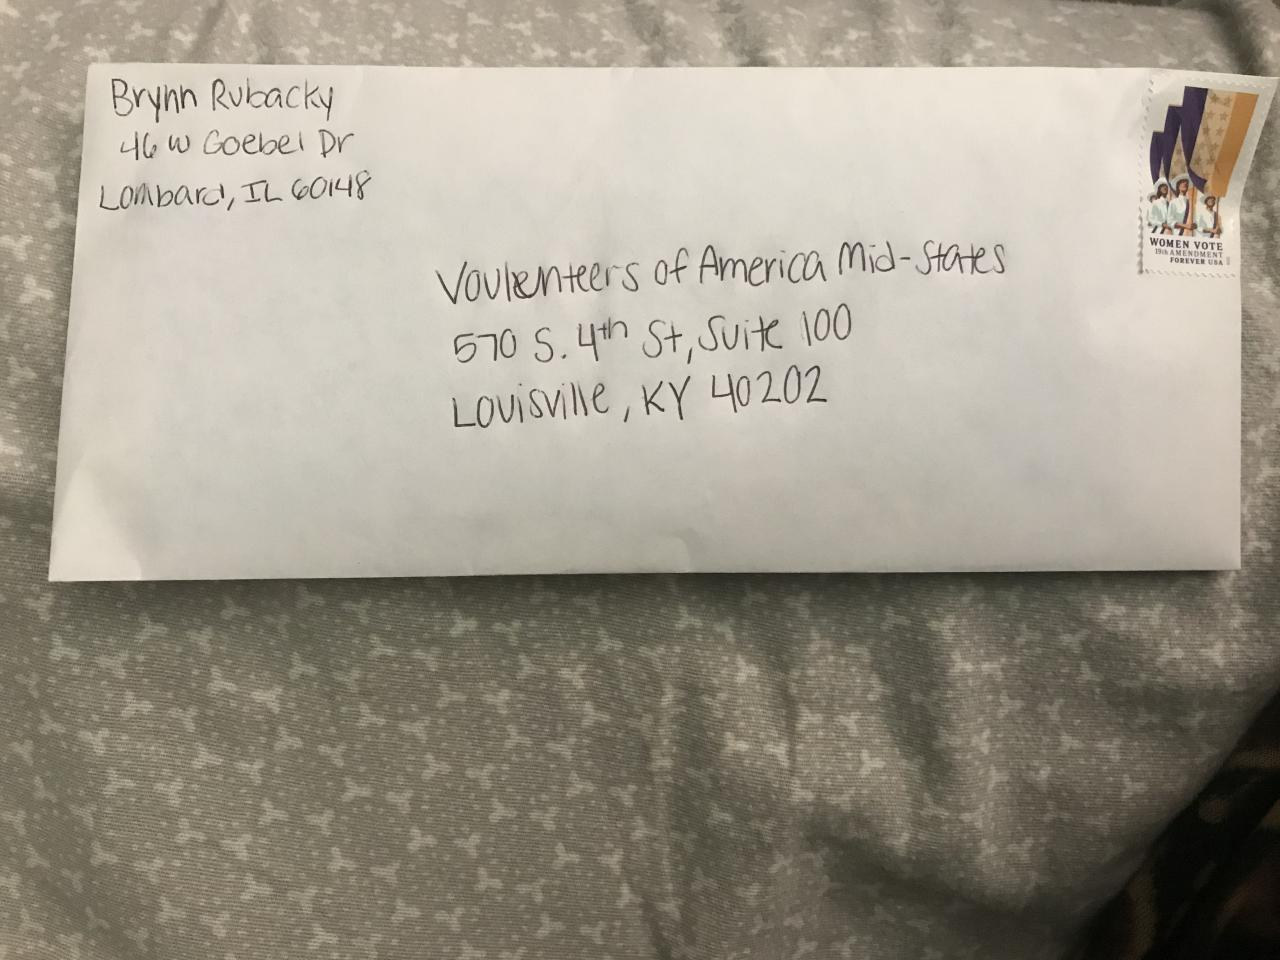 Brynn Rubacky
46 W Goebel Dr
Lombard, IL 60148
Voulenteers of America Mid-States
570 S. 4th St, Suite 100
Louisville, KY 40202
WOMEN VOTE
19th AMENDMENT
FOREVER USA